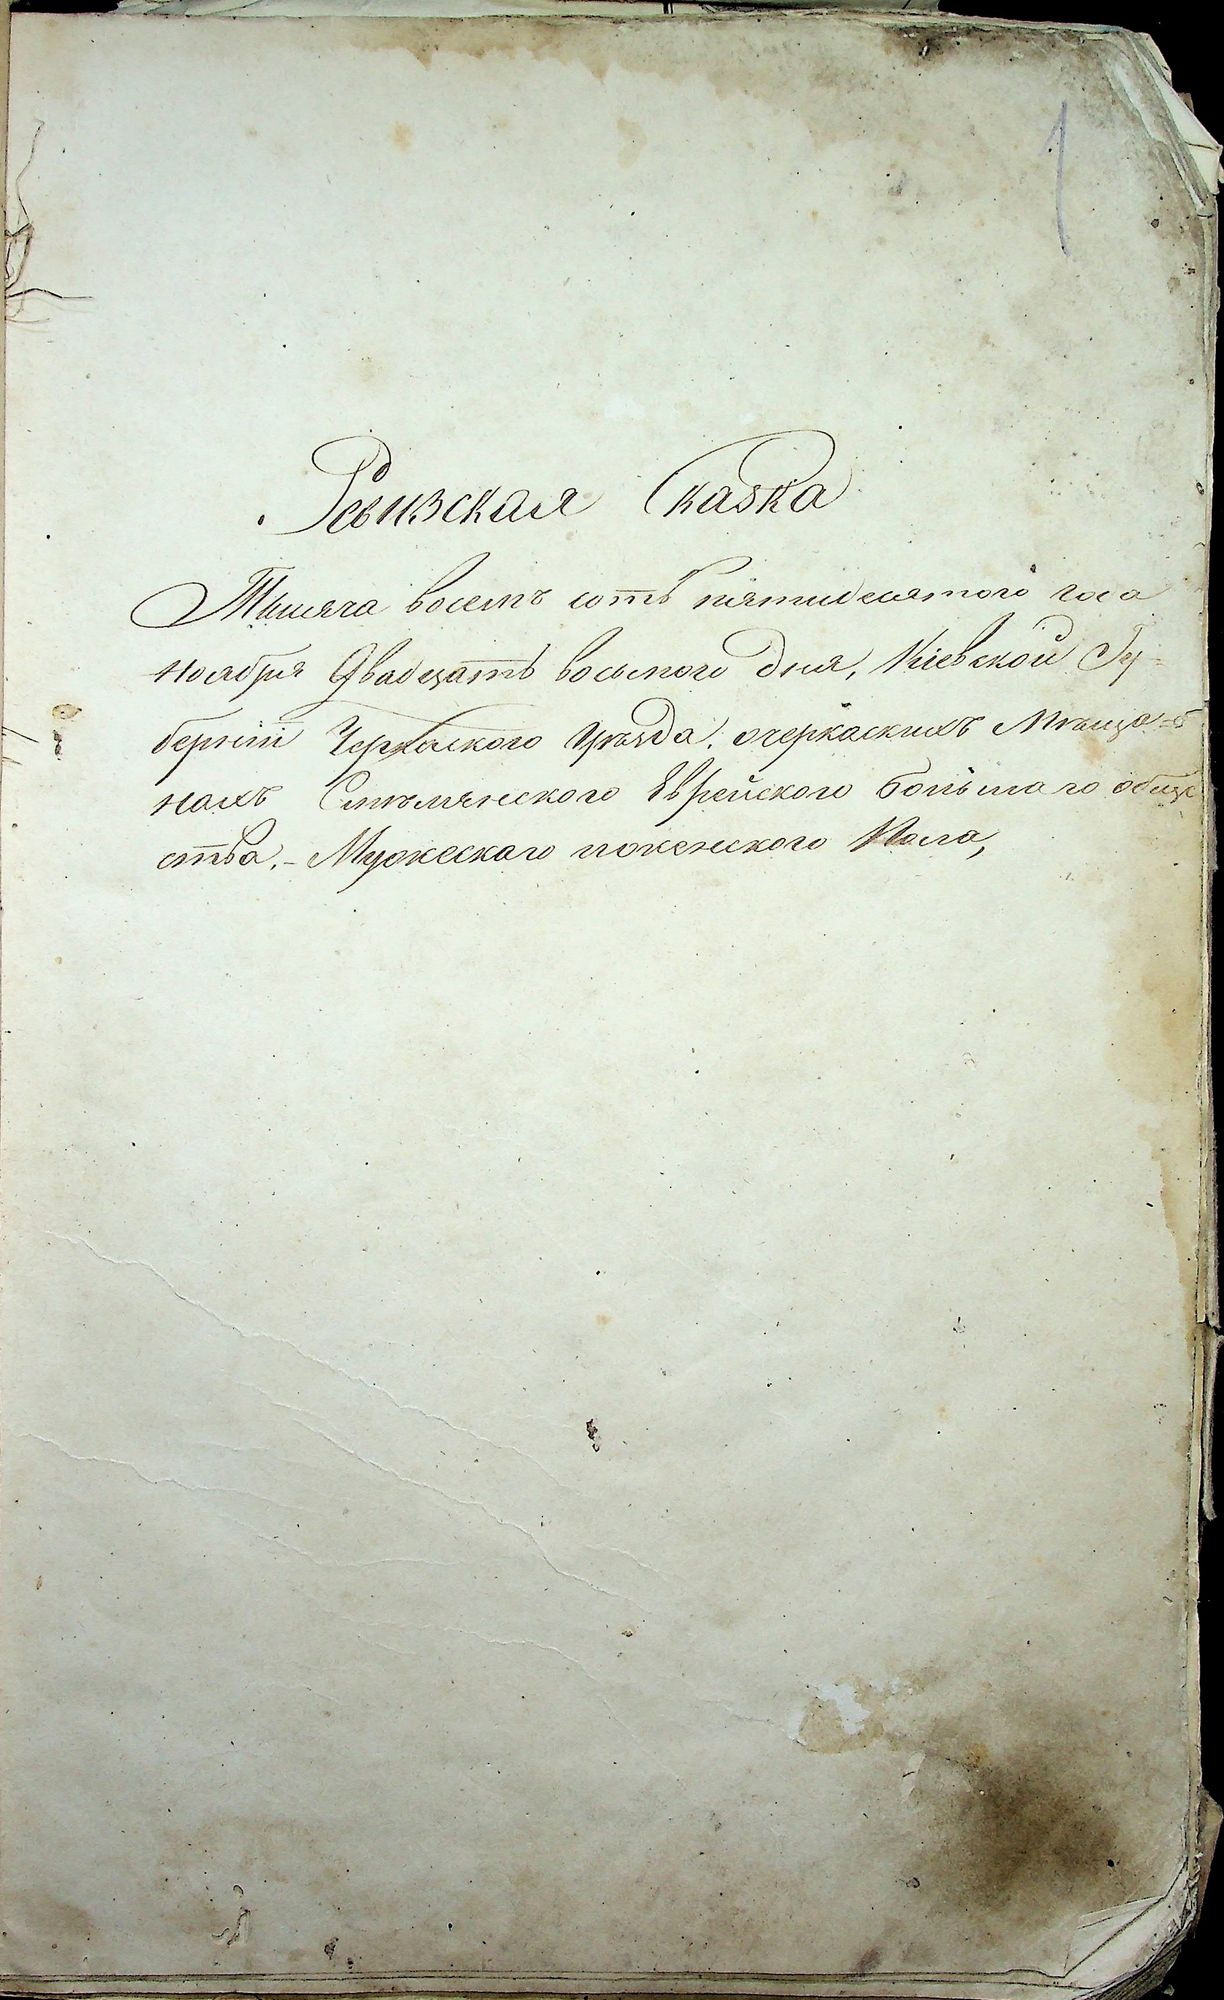 1
Ревизская Сказка
Тысяча восемъ сотъ пятидесятого года
ноября Двадцать восьмого дня, Кіевской Гу=
берніи Черкаского Уѣзда. о черкаскихъ Мѣща=
нахъ Смѣлянского Еврейского большаго обще
ства, - Мужескаго и женского Пола,